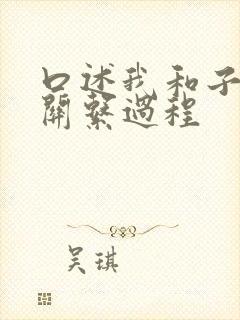 口述我和子
關繫過程
吴琪